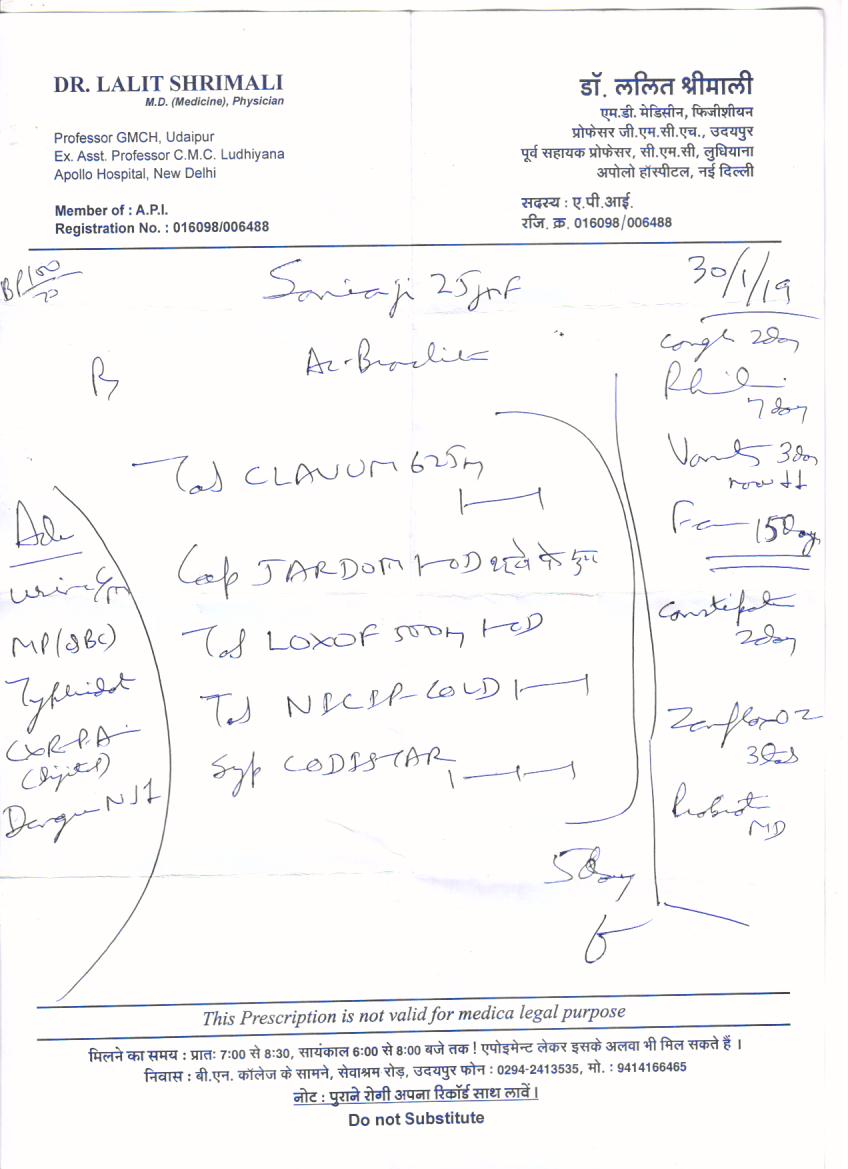 DR. LALIT SHRIMALI
M.D. (Medicine), Physician
Professor GMCH, Udaipur
Ex. Asst. Professor C.M.C. Ludhiyana
Apollo Hospital, New Delhi
Member of : A.P.I.
Registration No. : 016098/006488
डॉ. ललित श्रीमाली
एम.डी. मेडिसीन, फिजीशीयन
प्रोफेसर जी.एम.सी.एच., उदयपुर
पूर्व सहायक प्रोफेसर, सी.एम.सी, लुधियाना
अपोलो हॉस्पीटल, नई दिल्ली
सदस्य : ए.पी.आई.
रजि. क्र. 016098/006488
BP 100/70
25yrF
30/1/19
Cough 2day
7day
3day
Fever 15day
Constipation
2day
3
MD
Tab CLAVUM 625m
Cap JARDOM 1-OD
Tab LOXOF 500m 1-OD
Tab NICIP-COLD
Syp CODISTAR
5day
Adv
Urine C/M
MP (QBC)
Typhidot
CXR-P.A.
(Digital)
Dengue NS1
This Prescription is not valid for medica legal purpose
मिलने का समय : प्रातः 7:00 से 8:30, सायंकाल 6:00 से 8:00 बजे तक ! एपोइमेन्ट लेकर इसके अलवा भी मिल सकते हैं ।
निवास : बी.एन. कॉलेज के सामने, सेवाश्रम रोड़, उदयपुर फोन : 0294-2413535, मो. : 9414166465
नोट : पुराने रोगी अपना रिकॉर्ड साथ लावें ।
Do not Substitute